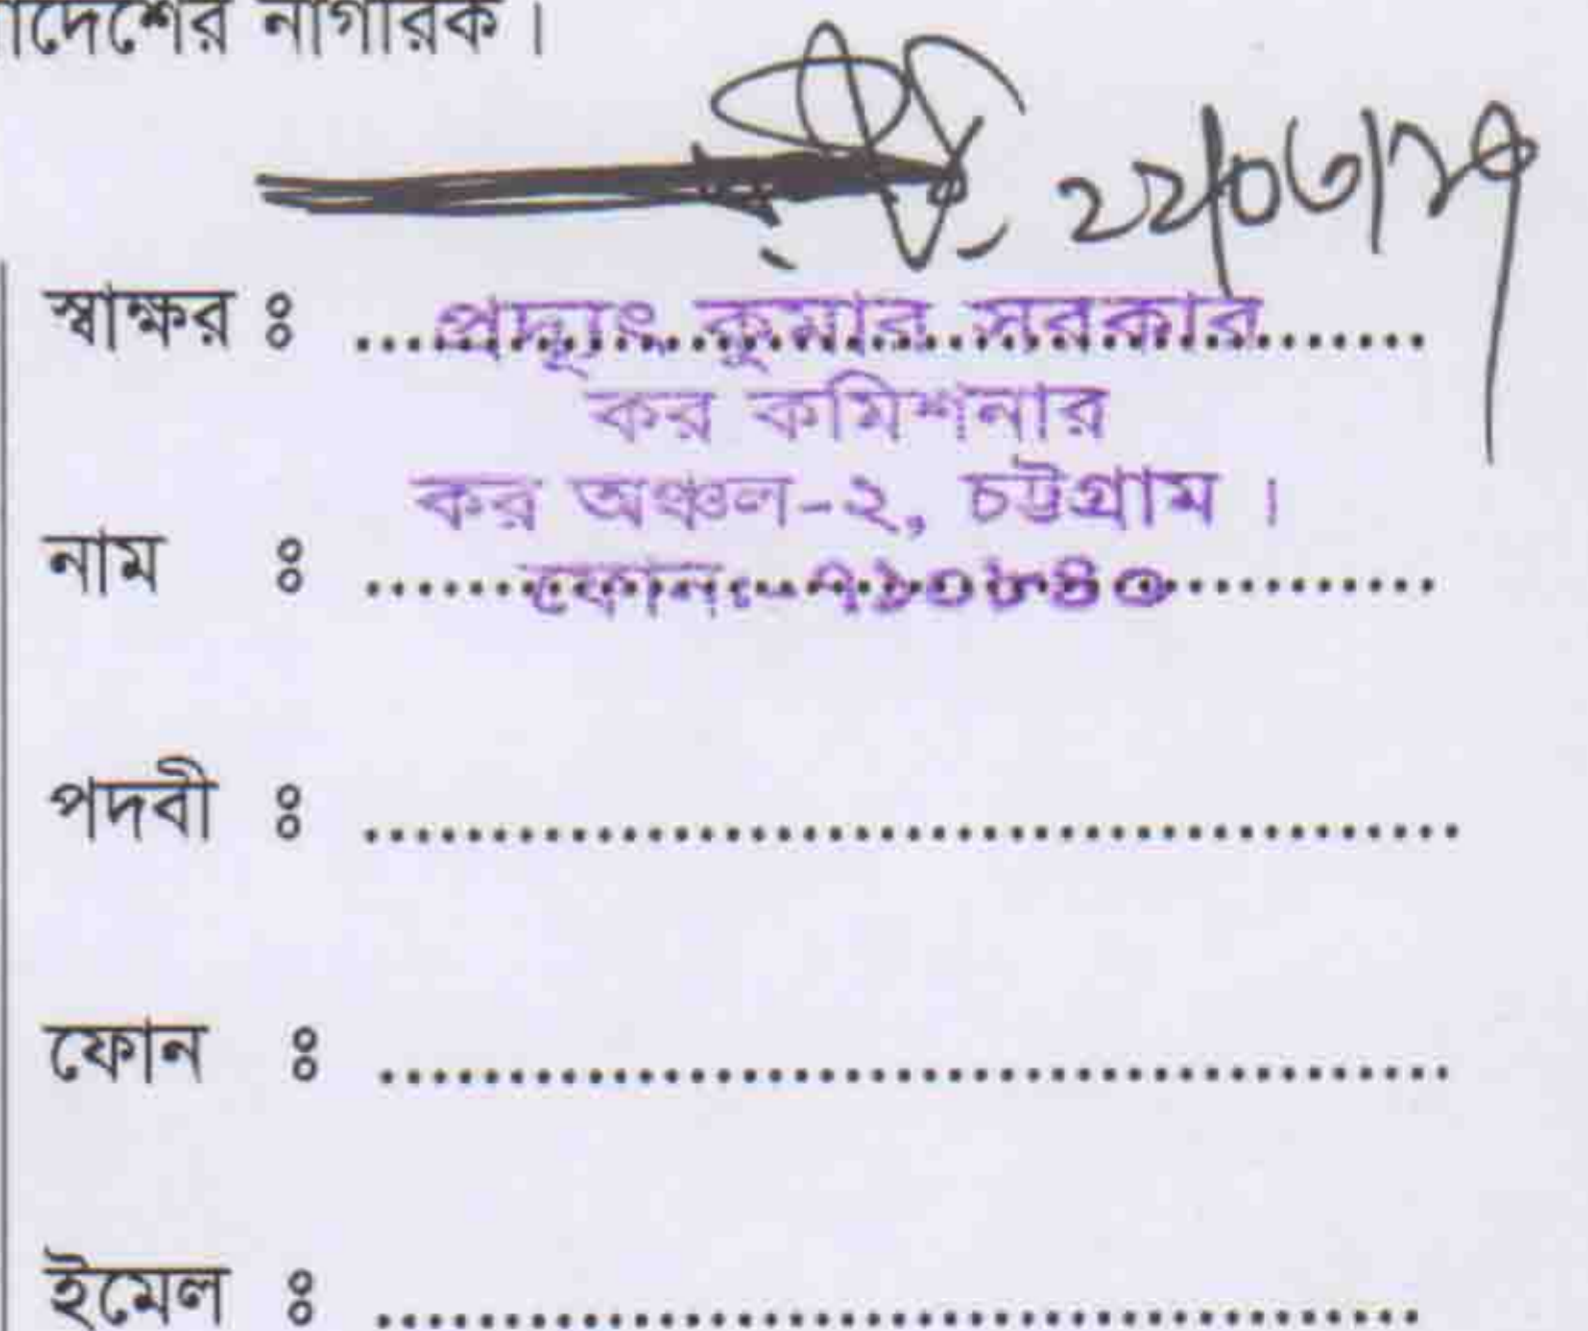 নাগরিক।
২২/০৩/২৭
স্বাক্ষর ঃ প্রদ্যুৎ কুমার সরকার
কর কমিশনার
কর অঞ্চল-২, চট্টগ্রাম।
নাম ঃ ফোনঃ-৭১০৮৪০
পদবী ঃ
ফোন ঃ
ইমেল ঃ